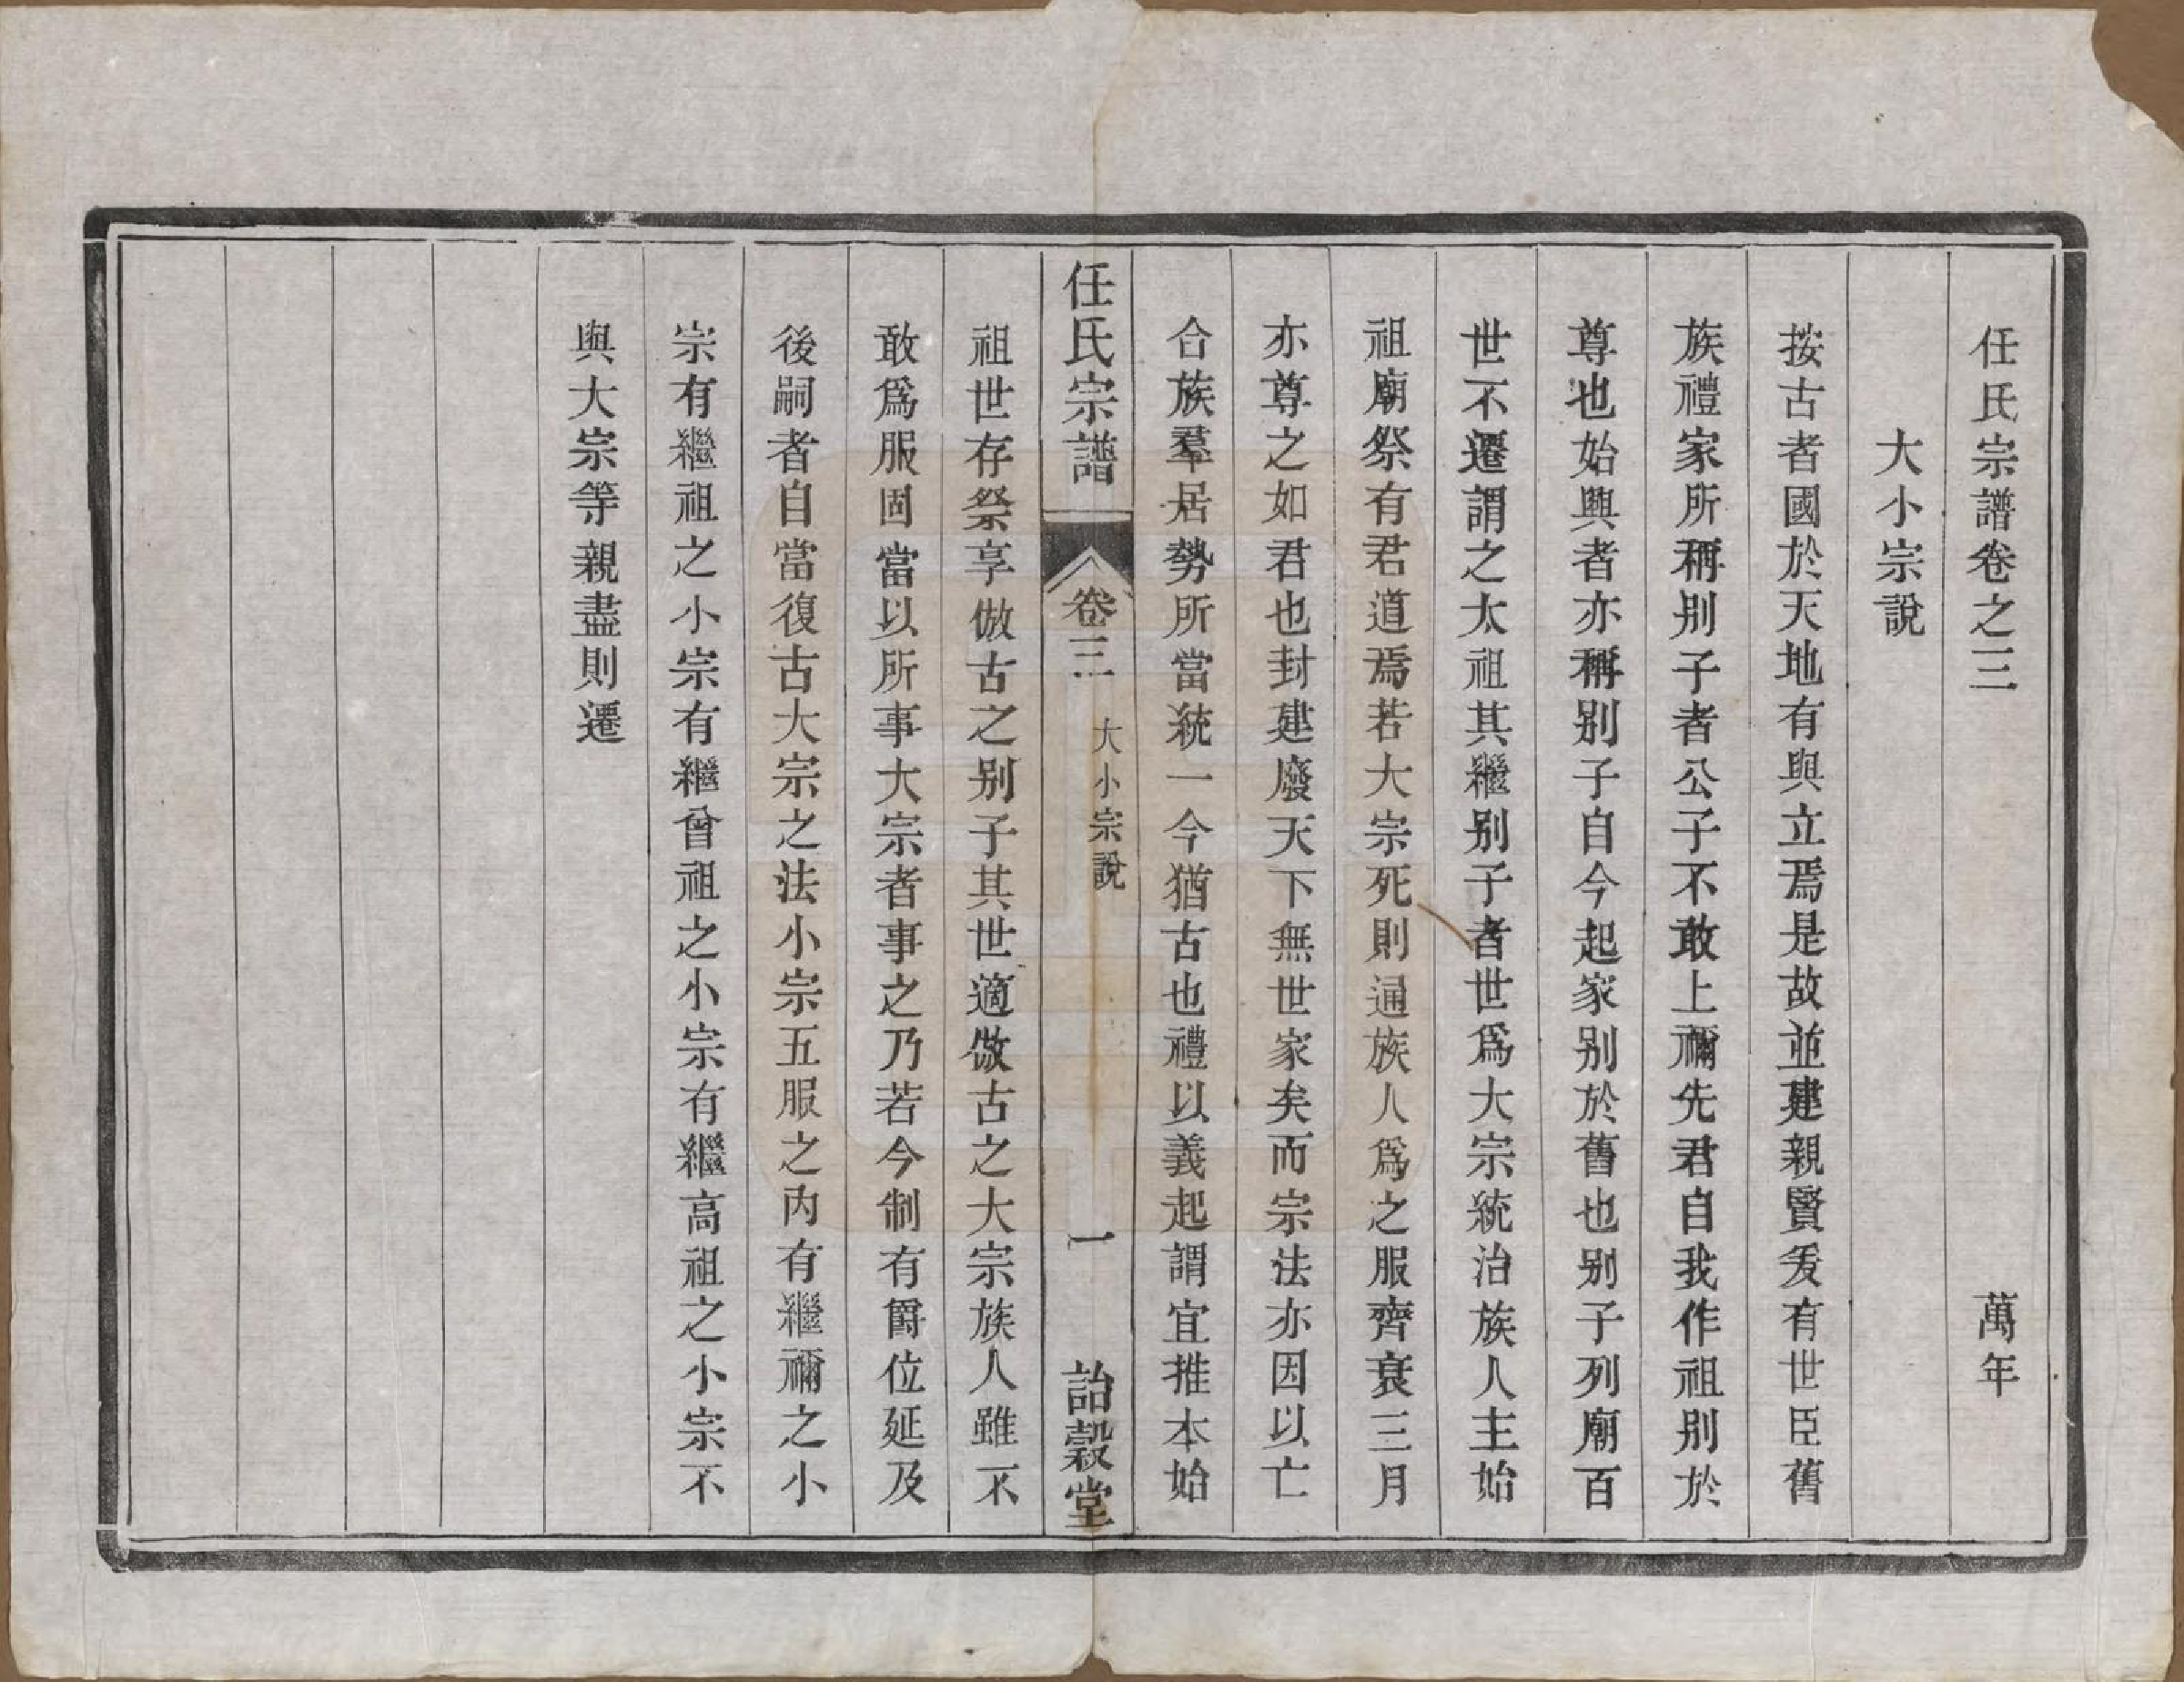 任氏宗譜卷之三　萬年
大小宗說
按古者國於天地有與立焉是故並建親賢爰有世臣舊
族禮家所稱別子者公子不敢上禰先君自我作祖別於
尊也始興者亦稱別子自今起家別於舊也別子列廟百
世不遷謂之太祖其繼別子者世爲大宗統治族人主始
祖廟祭有君道焉若大宗死則通族人爲之服齊衰三月
亦尊之如君也封建廢天下無世家矣而宗法亦因以亡
合族羣居勢所當統一今猶古也禮以義起謂宜推本始
任氏宗譜　卷三　大小宗說　一　詒穀堂
祖世存祭享倣古之別子其世適倣古之大宗族人雖不
敢爲服固當以所事大宗者事之乃若今制有爵位延及
後嗣者自當復古大宗之法小宗五服之內有繼禰之小
宗有繼祖之小宗有繼曾祖之小宗有繼高祖之小宗不
與大宗等親盡則遷